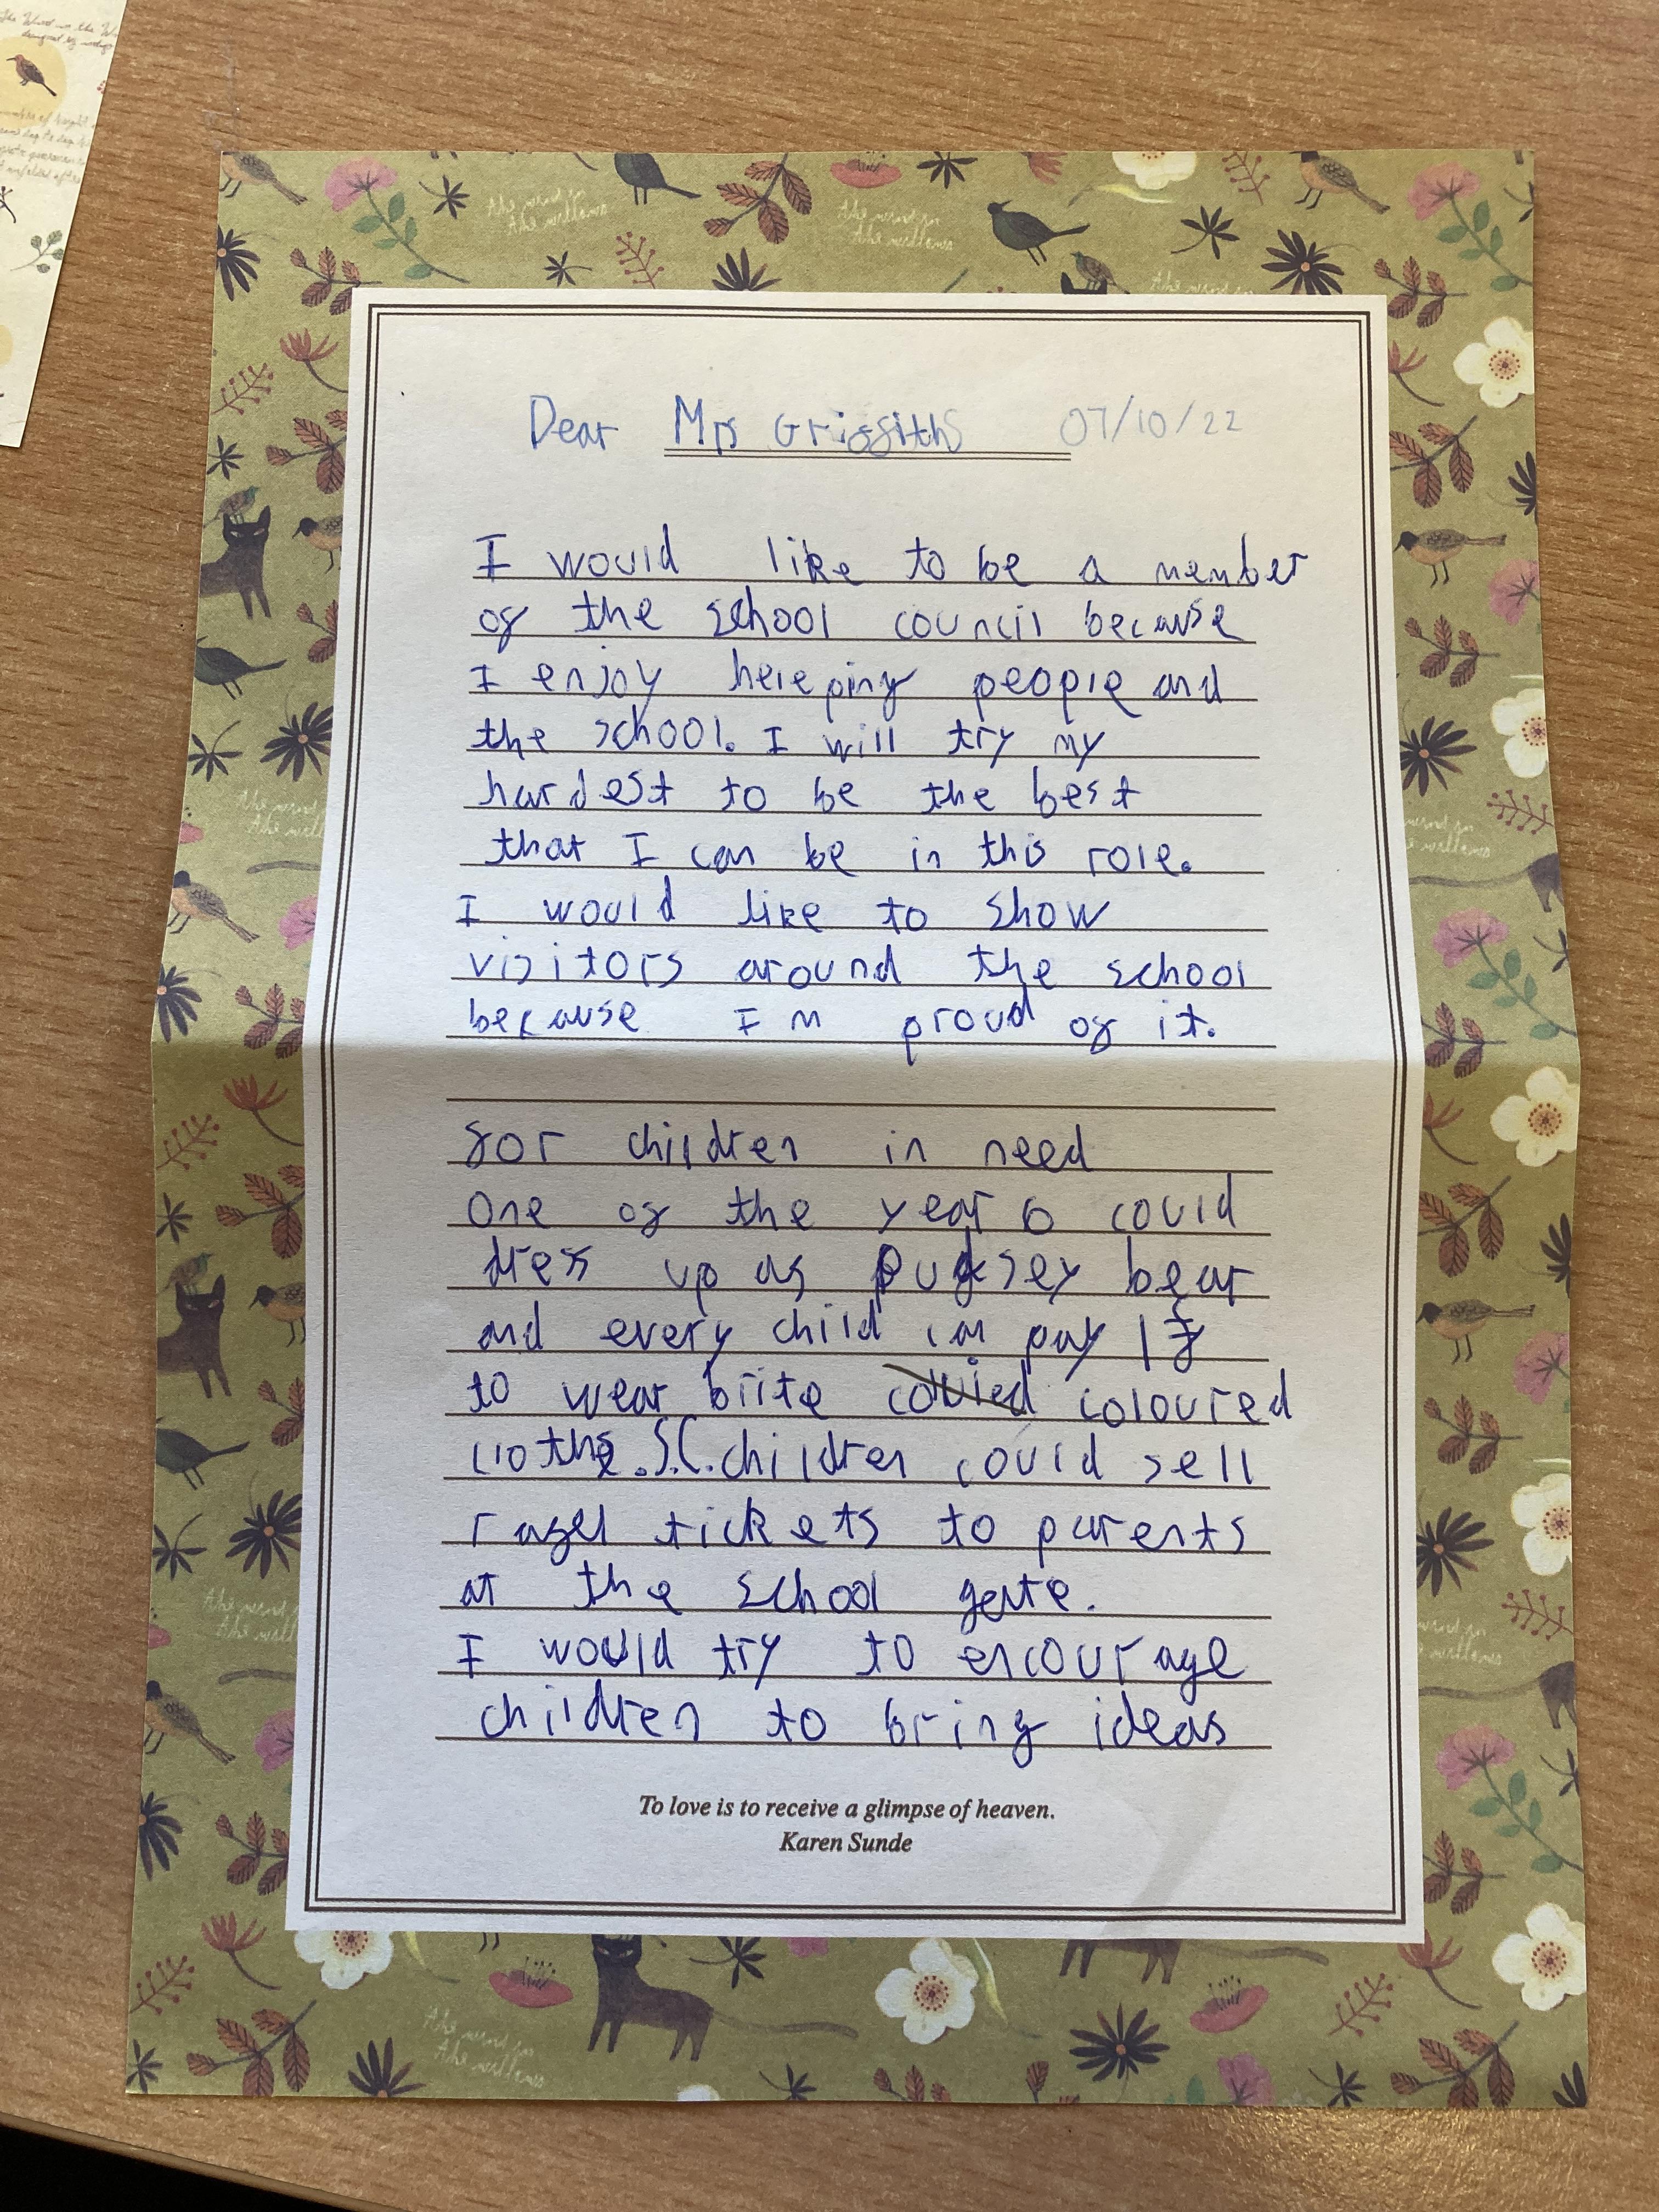 Dear Mrs Griffiths 07/10/22
I would like to be a member
of the school council because
I enjoy hereping people and
the school. I will try my
hardest to be the best
that I can be in this role.
I would like to show
visitors around the school
because Im proud of it.
for children in need
one of the year 6 could
dress up as pudsey bear
and every child can pay 1£
to wear brite coloured
clothe.S.C.children could sell
rafel tickets to parents
at the school gate.
I would try to encourage
children to bring ideas
To love is to receive a glimpse of heaven.
Karen Sunde